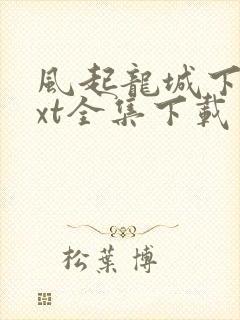 風起龍城下
xt全集下載
松葉博